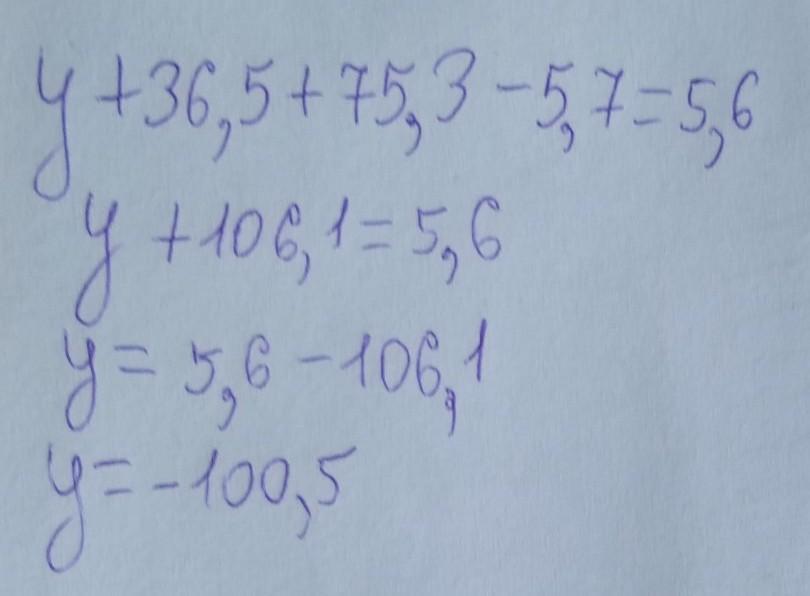 y + 36,5 + 75,3 - 5,7 = 5,6
y + 106,1 = 5,6
y = 5,6 - 106,1
y = -100,5